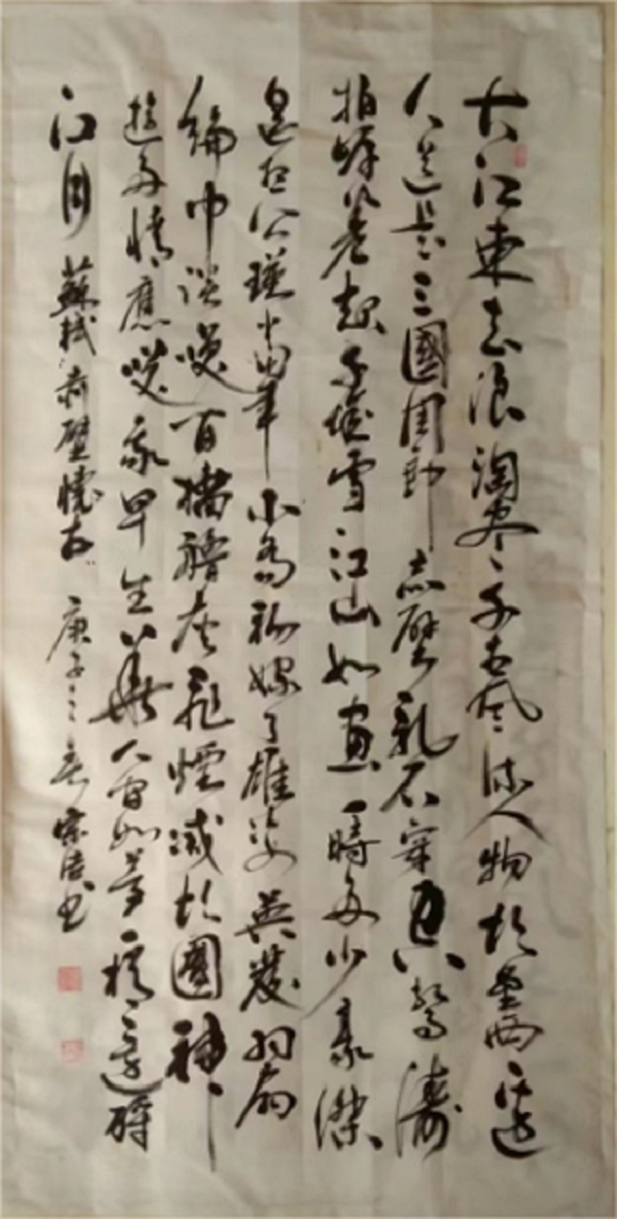 大江東去浪淘尽千古風流人物故壘西邊
人道是三國周郎赤壁亂石穿空驚濤
拍岸卷起千堆雪江山如畫一時多少豪傑
遙想公瑾當年小喬初嫁了雄姿英發羽扇
綸巾談笑間檣櫓灰飛煙滅故國神
遊多情應笑我早生華人間如夢一樽還酹
江月 蘇軾赤壁懷古 庚子之春 書